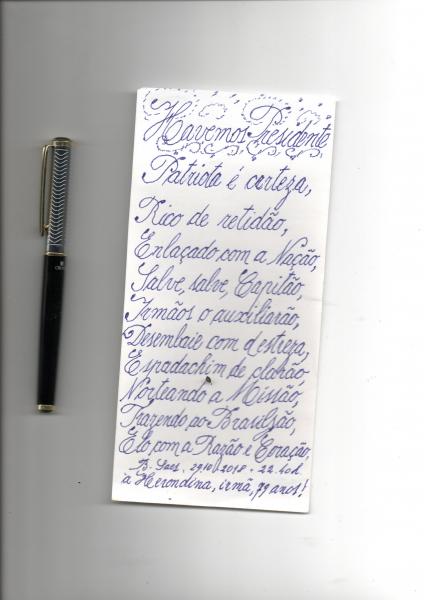 Havemos Presidente
Patriota é certeza,
Rico de retidão,
Enlaçado com a Nação,
Salve, salve, Capitão,
Irmãos o auxiliarão,
Desembaie com destreza,
Espadachim de plantão,
Norteando a Missão,
Trazendo ao Brasilzão,
Elo com a Razão e Coração,
29.10.2018 - 22
à Herondina, irmã, 79 anos!